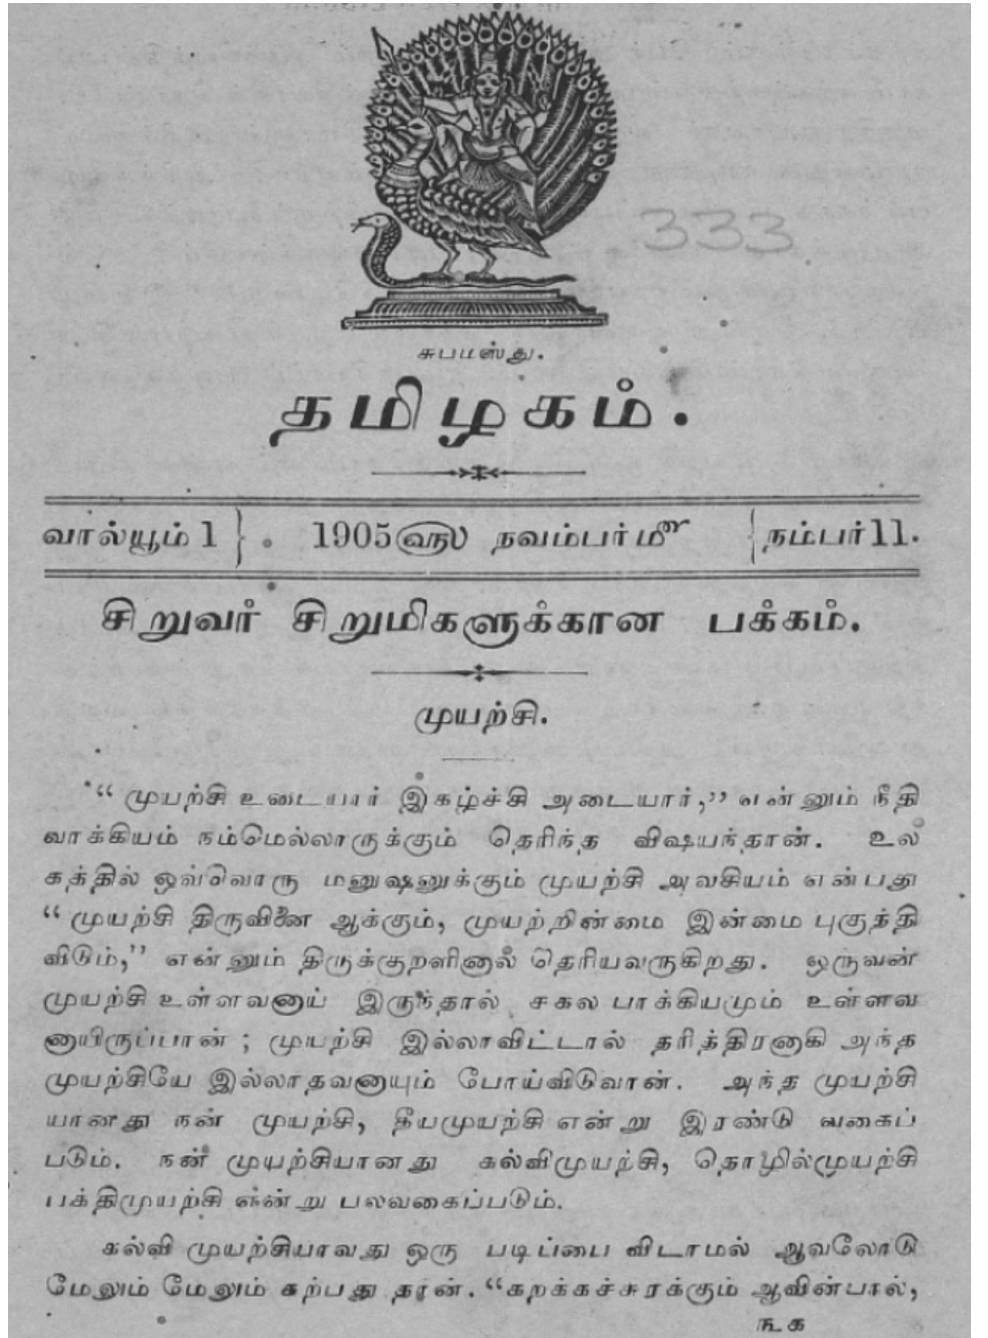 333
சுபமஸ்து.
தமிழகம்.
வால்யூம் 1 } . 1905௵ நவம்பர்மீ { நம்பர் 11.
சிறுவர் சிறுமிகளுக்கான பக்கம்.
முயற்சி.
“ முயற்சி உடையார் இகழ்ச்சி அடையார்,” என்னும் நீதி
வாக்கியம் நம்மெல்லாருக்கும் தெரிந்த விஷயந்தான். உல
கத்தில் ஒவ்வொரு மனுஷனுக்கும் முயற்சி அவசியம் என்பது
“ முயற்சி திருவினை ஆக்கும், முயற்றின்மை இன்மை புகுத்தி
விடும்,” என்னும் திருக்குறளினால் தெரியவருகிறது. ஒருவன்
முயற்சி உள்ளவனாய் இருந்தால் சகல பாக்கியமும் உள்ளவ
னாயிருப்பான் ; முயற்சி இல்லாவிட்டால் தரித்திரனாகி அந்த
முயற்சியே இல்லாதவனாயும் போய்விடுவான். அந்த முயற்சி
யானது நன் முயற்சி, தீயமுயற்சி என்று இரண்டு வகைப்
படும். நன் முயற்சியானது கல்விமுயற்சி, தொழில்முயற்சி
பக்திமுயற்சி என்று பலவகைப்படும்.
கல்வி முயற்சியாவது ஒரு படிப்பை விடாமல் ஆவலோடு
மேலும் மேலும் கற்பது தான். “கறக்கச்சுரக்கும் ஆவின்பால்,
௩௧